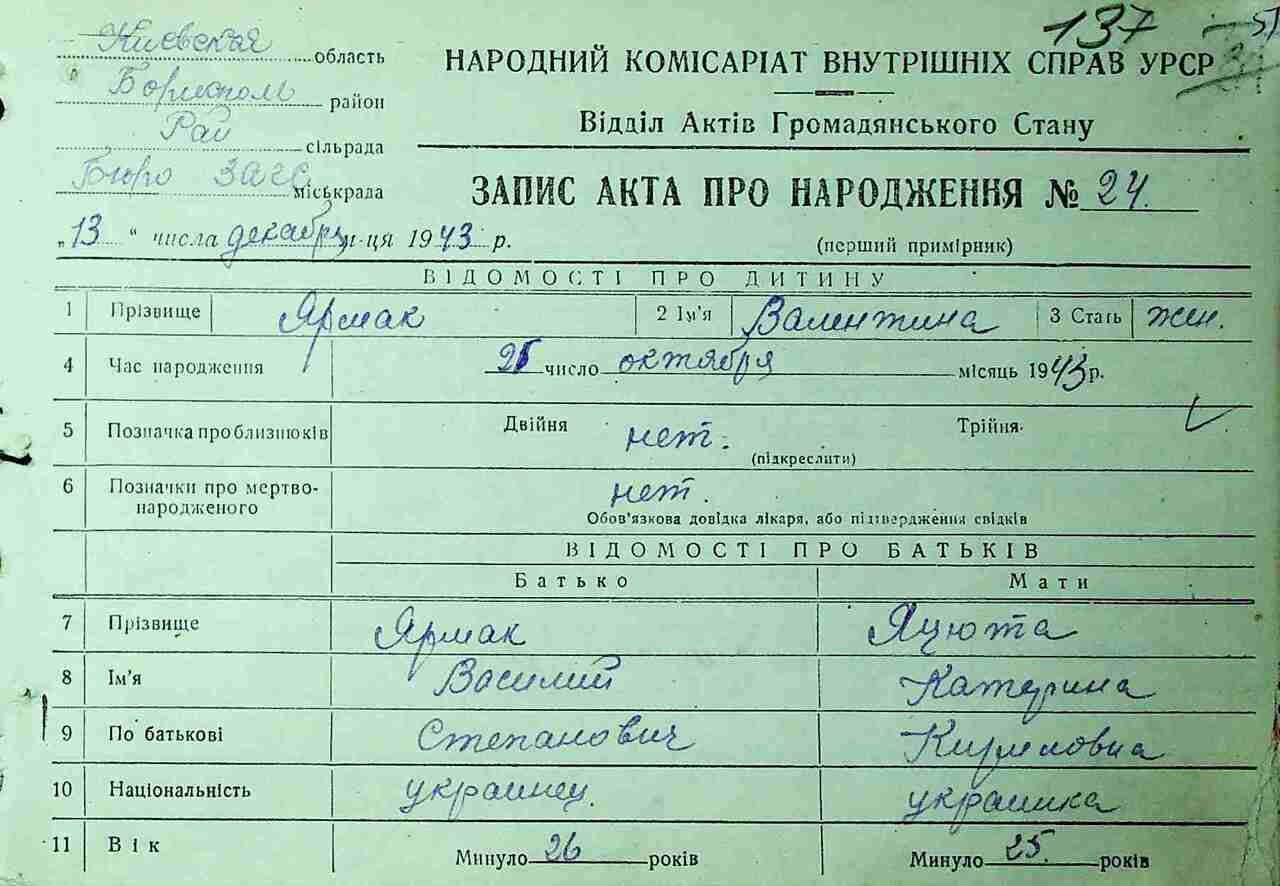 137
Киевская область
Бориспол район
Рай сільрада
Бюро ЗАГС міськрада
НАРОДНИЙ КОМІСАРІАТ ВНУТРІШНІХ СПРАВ УРСР
Відділ Актів Громадянського Стану
ЗАПИС АКТА ПРО НАРОДЖЕННЯ № 24.
„13“ числа декабря м-ця 1943 р.
(перший примірник)
ВІДОМОСТІ ПРО ДИТИНУ
1 Прізвище Ярмак 2 Ім'я Валентина 3 Стать жен.
4 Час народження число октября місяць 1943 р.
5 Позначка про близнюків Двійня нет. Трійня
(підкреслити)
6 Позначки про мертво-
народженого нет.
Обов'язкова довідка лікаря, або підтвердження свідків
ВІДОМОСТІ ПРО БАТЬКІВ
Батько Мати
7 Прізвище Ярмак Яцюта
8 Ім'я Василий Катерина
9 По батькові Степанович Кириловна
10 Національність украинец. украинка
11 Вік Минуло 26 років Минуло 25. років